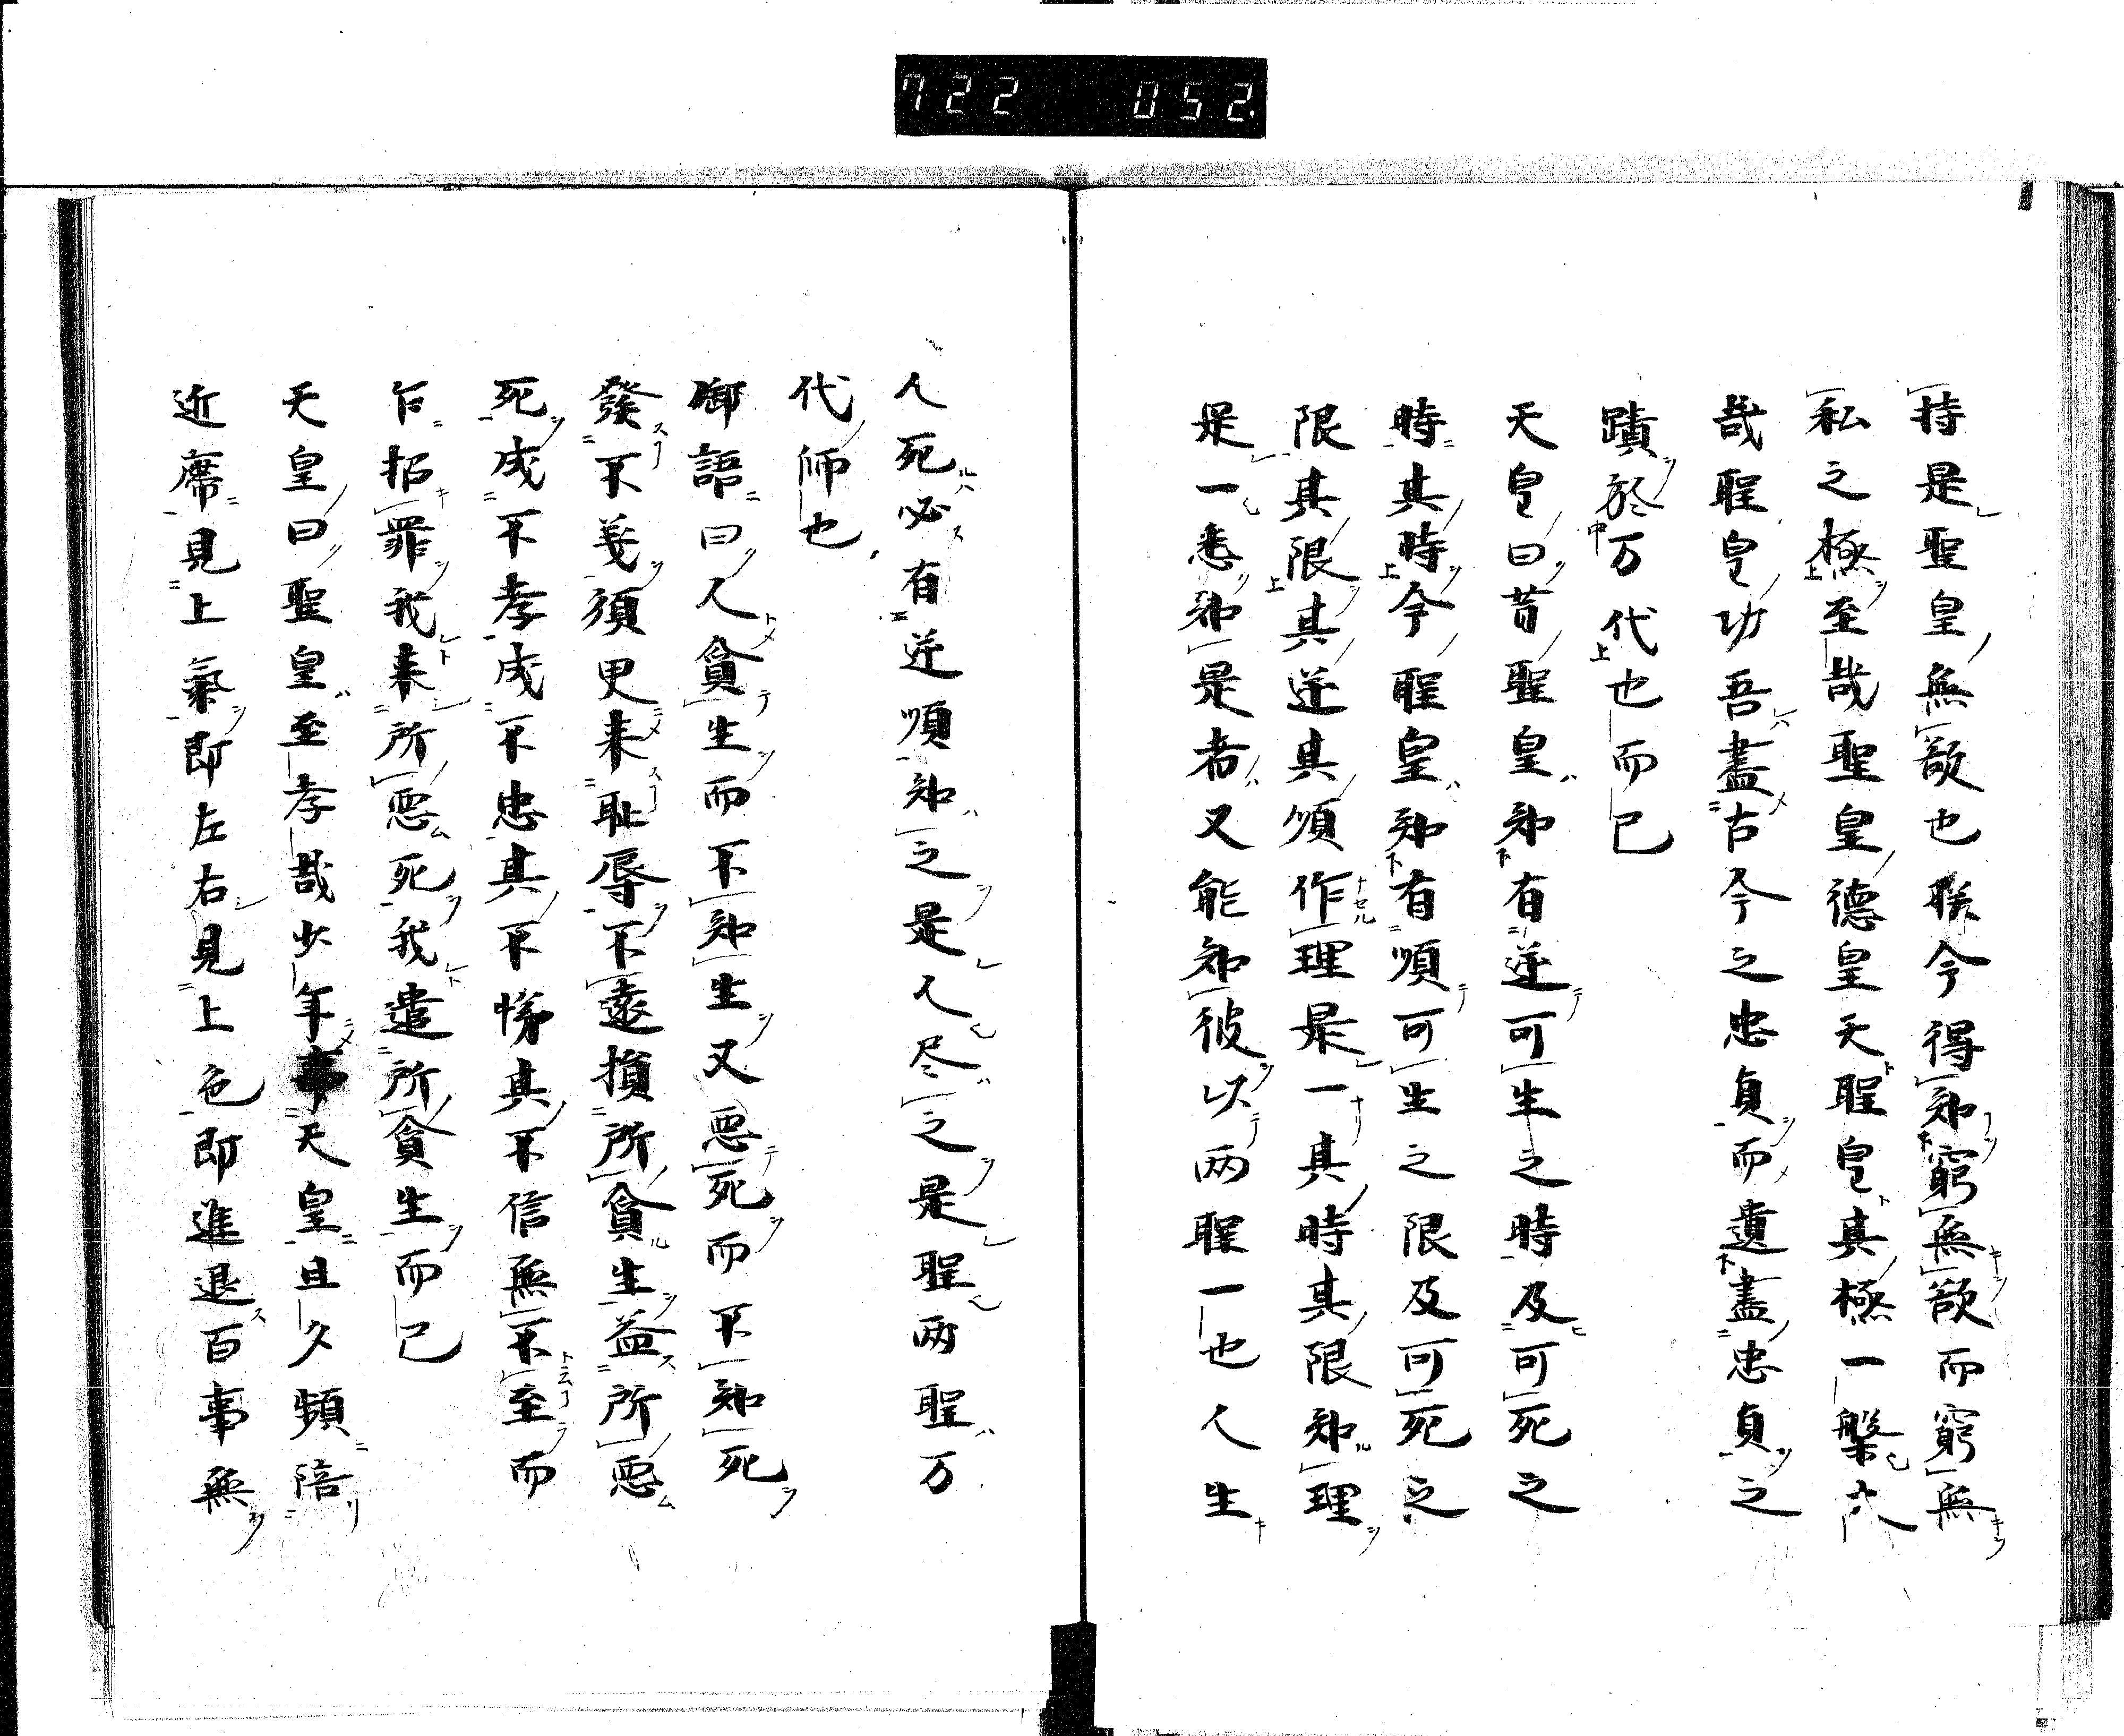 722 052.
持是聖皇無欲也朕今得知窮無欲而窮無
私之極至哉聖皇德皇天聖皇其極一槃大
哉聖皇功吾盡古今之忠貞而遺盡忠貞之
蹟於万代也而已
天皇曰昔聖皇知有逆可生之時及可死之
時其時今聖皇知有順可生之限及可死之
限其限其逆其順作理是一其時其限知理
是一悉知是者又能知彼以两聖一也人生
人死必有逆順知之是人尽之是聖两聖万
代師也
御語曰人貪生而不知生又惡死而不知死
發不義須更来耻辱不遠損所貪生益所惡
死成不孝成不忠其不悌其不信無不至而
乍招罪我来所惡死我遣所貪生而已
天皇曰聖皇至孝哉少年事天皇且久頻陪
近席見上氣即左右見上色即進退百事無